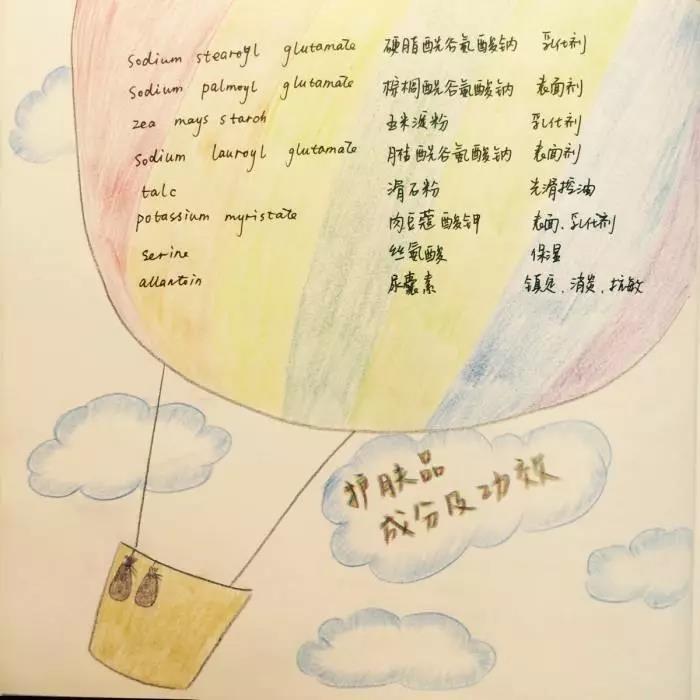 sodium stearoyl glutamate 硬脂酰谷氨酸钠 乳化剂
sodium palmoyl glutamate 棕榈酰谷氨酸钠 表面剂
zea mays starch 玉米淀粉 乳化剂
sodium lauroyl glutamate 月桂酰谷氨酸钠 表面剂
talc 滑石粉 光滑控油
potassium myristate 肉豆蔻酸钾 表面、乳化剂
serine 丝氨酸 保湿
allantoin 尿囊素 镇定、消炎、抗敏
护肤品
成分及功效